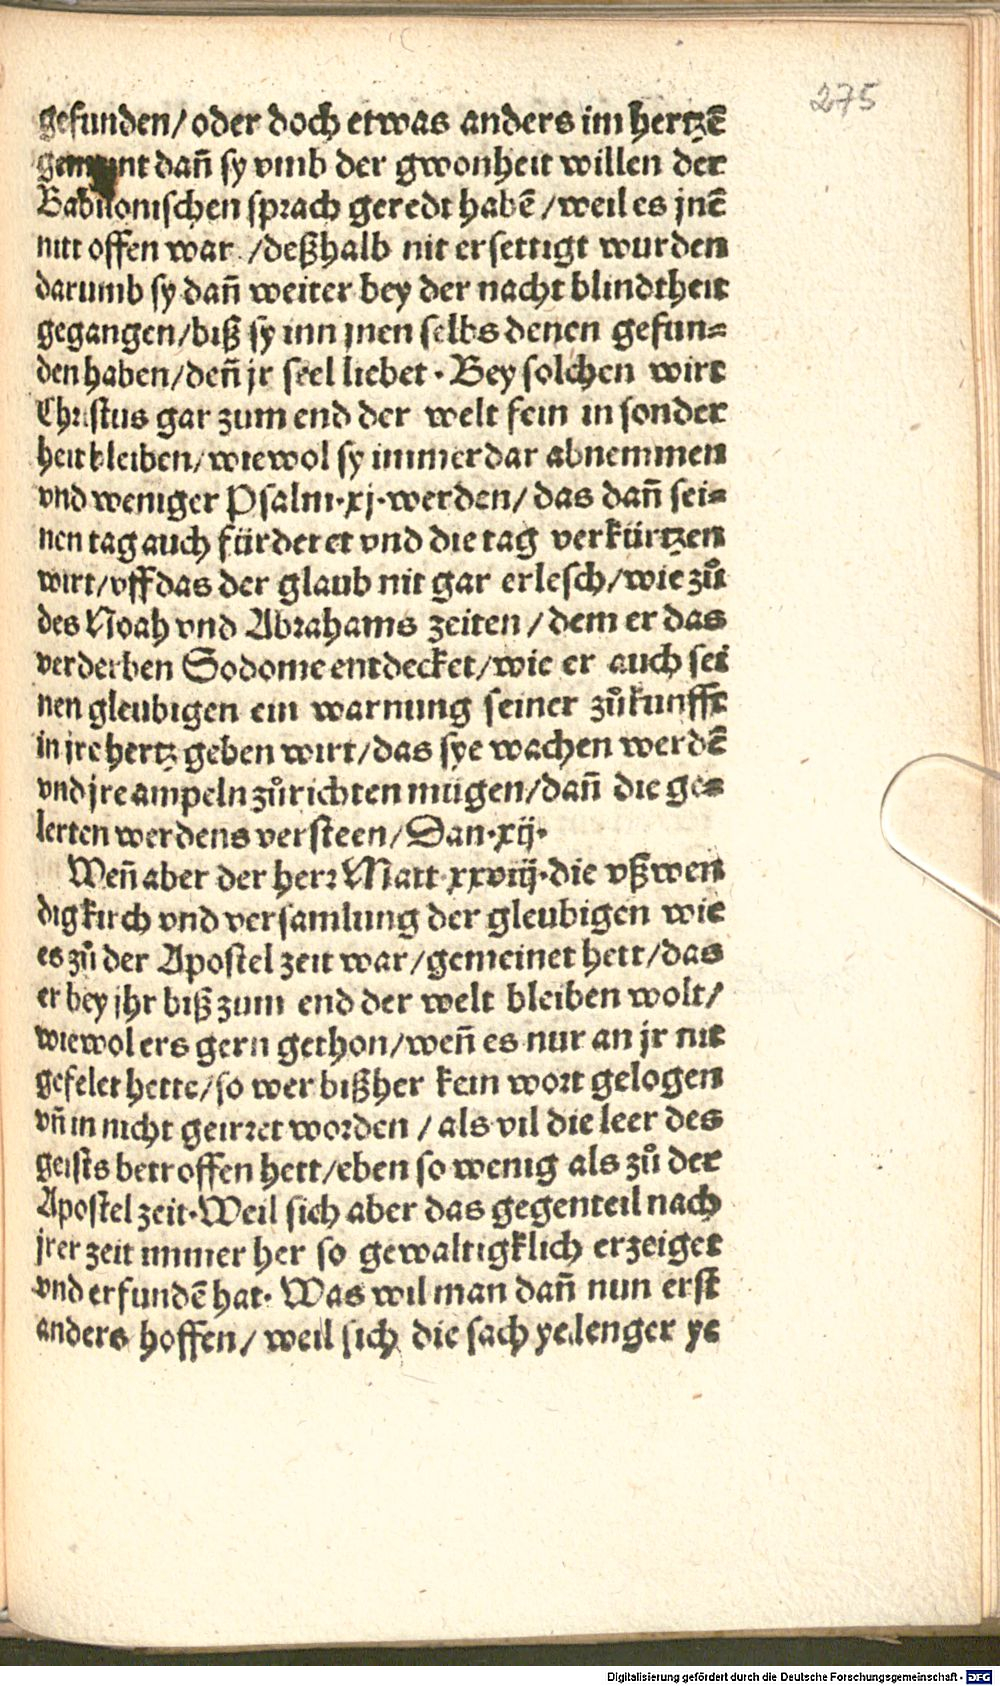 275
gefunden/ oder doch etwas anders im hertzē
gemeint dañ sy vmb der gwonheit willen der
Babilonischen sprach geredt habē /weil es jnē
nitt offen war /deßhalb nit ersettigt wurden
darumb sy dañ weiter bey der nacht blindtheit
gegangen/biß sy inn jnen selbs denen gefun=
den haben/deñ jr seel liebet. Bey solchen wirt
Christus gar zum end der welt fein in sonder
heit bleiben/ wiewol sy immerdar abnemmen
vnd weniger Psalm.xj.werden/ das dañ sei=
nen tag auch fürderet vnd die tag verkürtzen
wirt/vff das der glaub nit gar erlesch/wie zů
des Noah vnd Abrahams zeiten/ dem er das
verderben Sodome entdecket/wie er auch sei
nen gleubigen ein warnung seiner zůkunfft
in jre hertz geben wirt/das sye wachen werdē
vnd jre ampeln zůrichten mügen/dañ die ge=
lerten werdens versteen/ Dan.xij.
Weñ aber der herr Matt.xxviij.die vßwen
dig kirch vnd versamlung der gleubigen wie
es zů der Apostel zeit war/gemeinet hett/das
er bey jhr biß zum end der welt bleiben wolt/
wiewol ers gern gethon/weñ es nur an jr nit
gefelet hette/so wer bißher kein wort gelogen
vñ in nicht geirret worden / als vil die leer des
geists betroffen hett/eben so wenig als zů der
Apostel zeit.Weil sich aber das gegenteil nach
jrer zeit immer her so gewaltigklich erzeiget
vnd erfundē hat. Was wil man dañ nun erst
anders hoffen/ weil sich die sach ye lenger ye
Digitalisierung gefördert durch die Deutsche Forschungsgemeinschaft - DFG